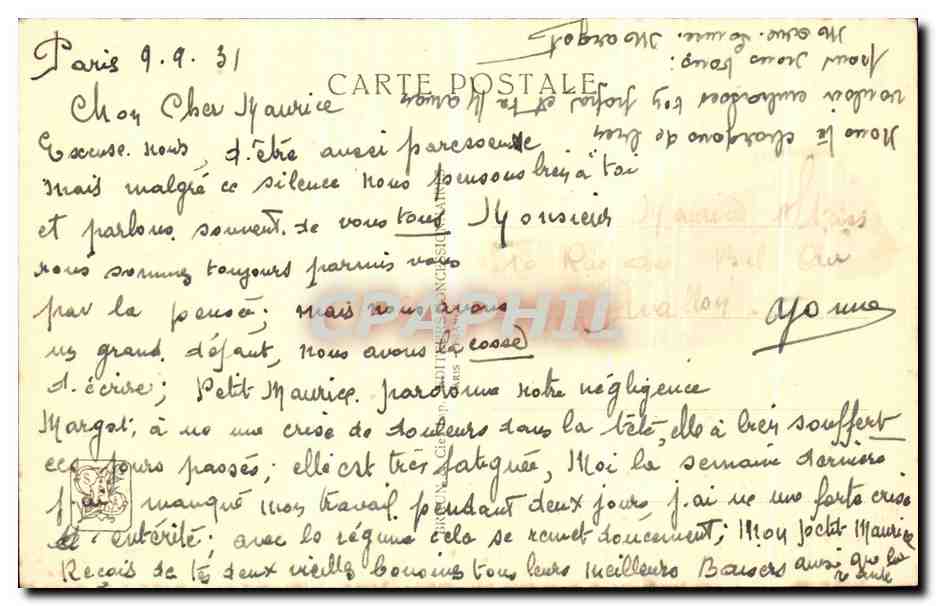 Paris 9.9.31
CARTE POSTALE
Mon Cher Maurice
Excuse nous, d'être aussi paresseuse
mais malgré ce silence nous pensons bien à toi
et parlons souvent de vous tous
nous sommes toujours parmis vous
par la pensée; mais nous avons
un grand défaut, nous avons la cosse
d'écrire; Petit Maurice pardonne notre négligence
Margot, à ue une crise de douleurs dans la tête, elle à bien souffert
ces jours passés; elle est très fatiguée, Moi la semaine dernière
j'ai manqué mon travail pendant deux jours, j'ai ue une forte crise
d'entérité; avec le régime cela se remet doucement; Mon petit Maurice
Recois de tes deux vieilles copines tous leurs meilleurs Baisers ainsi que la
Nous te chargons de bien
vouloir embrasser ton papa et ta Maman
pour nous tous:
Margot
Monsieur
Maurice
Rue du Bel Air
Yvonne
CPAPHIL